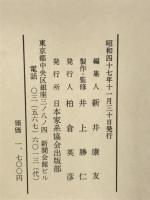 昭和四十七年十一月三十日発行
編集人 新井康友
製作・監修 井上勝仁
発行人 柏倉英彦
発行所 日本家系協会出版部
東京都中央区銀座二ノ八ノ四 新聞会館ビル
電話 〇三(五六七)六〇一三(代)
頒価 一、七〇〇円